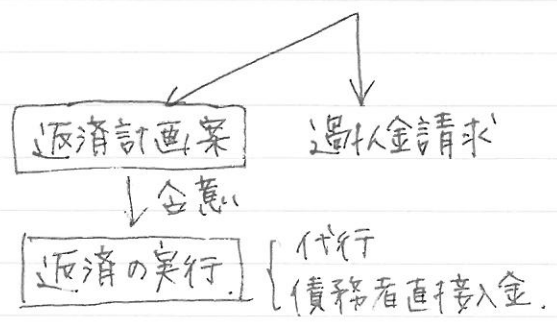 返済計画案
過払金請求
合意
返済の実行
代行
債務者直接入金.